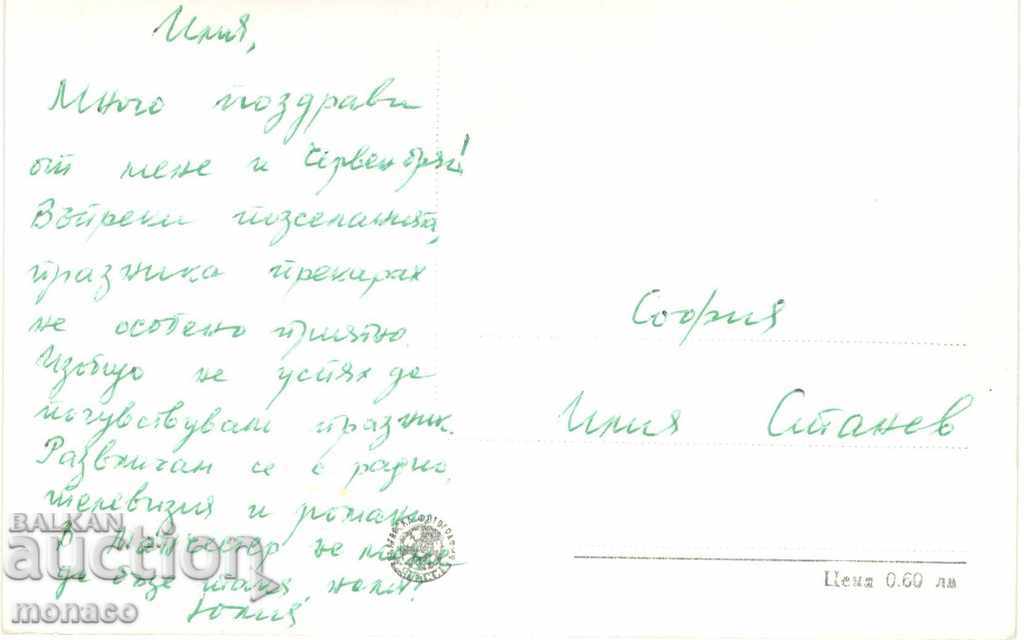 Илия,
Много поздрави
от мене и Червен бряг!
Въпреки
празника прекарах
не особено приятно.
Изобщо не успях да
почувствувам празник.
Развличам се с радио,
телевизия и романи.
В не може
да бъде така, нали?
Юлия
София
Илия Станев
Цена 0.60 лв
BALKAN
auction
monaco